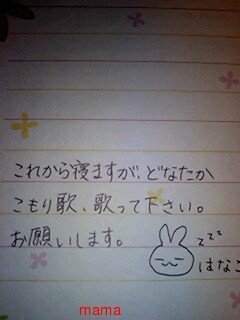 これから寝ますが、どなたか
こもり歌、歌って下さい。
お願いします。
zzz
はなこ
mama